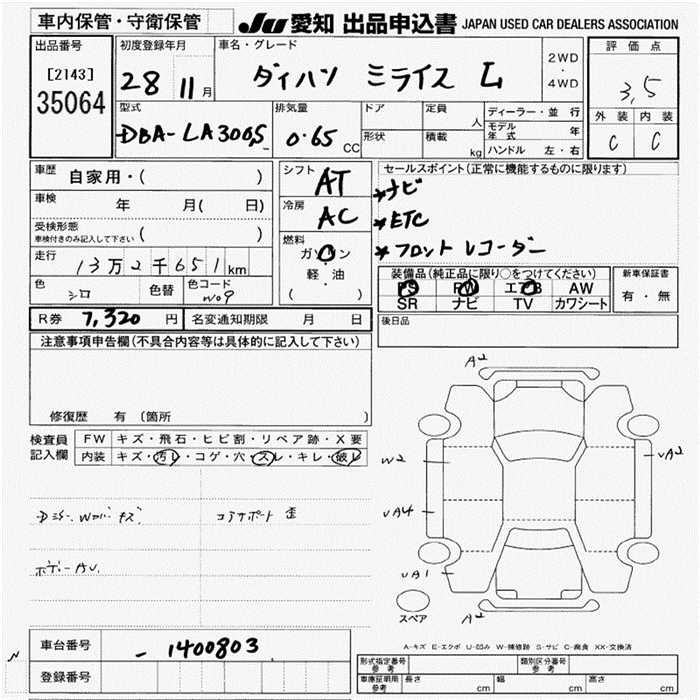 車内保管・守衛保管 JU 愛知 出品申込書 JAPAN USED CAR DEALERS ASSOCIATION
出品番号 初度登録年月 車名・グレード 2WD・4WD 評価点
[2143]
35064
28 11月 ダイハツ ミライス L 3,5
型式 排気量 ドア 定員 人 ディーラー・並行 外装 内装
DBA-LA300S 0.65 CC 形状 積載 kg モデル年式 年 C C
ハンドル 左・右
車歴 自家用・( ) シフト AT セールスポイント(正常に機能するものに限ります)
車検 年 月( 日) 冷房 AC *ナビ
受検形態 ( ) *ETC
車検付きのみ記入して下さい
燃料 ガソリン *フロントレコーダー
走行 13万2千651km 軽・油
( )
装備品(純正品に限り○をつけてください) 新車保証書
色 シロ 色替 色コード W09 PS PW エアB AW 有・無
SR ナビ TV カワシート
R券 7,320 円 名変通知期限 月 日 後日品
注意事項申告欄(不具合内容等は具体的に記入して下さい)
修復歴 有 (箇所 )
検査員記入欄 FW キズ・飛石・ヒビ割・リペア跡・X要
内装 キズ・汚レ・コゲ・穴・スレ・キレ・破レ
A2
W2 UA2
UA4
コアサポート 歪
UA1
スペア A2
A-キズ E-エクボ U-凹み W-補修跡 S-サビ C-腐食 XX-交換済
車台番号 -1400803
登録番号
形式指定番号 参考 類別区分番号 参考
車庫証明用 参考 長さ cm 幅 cm 高さ cm